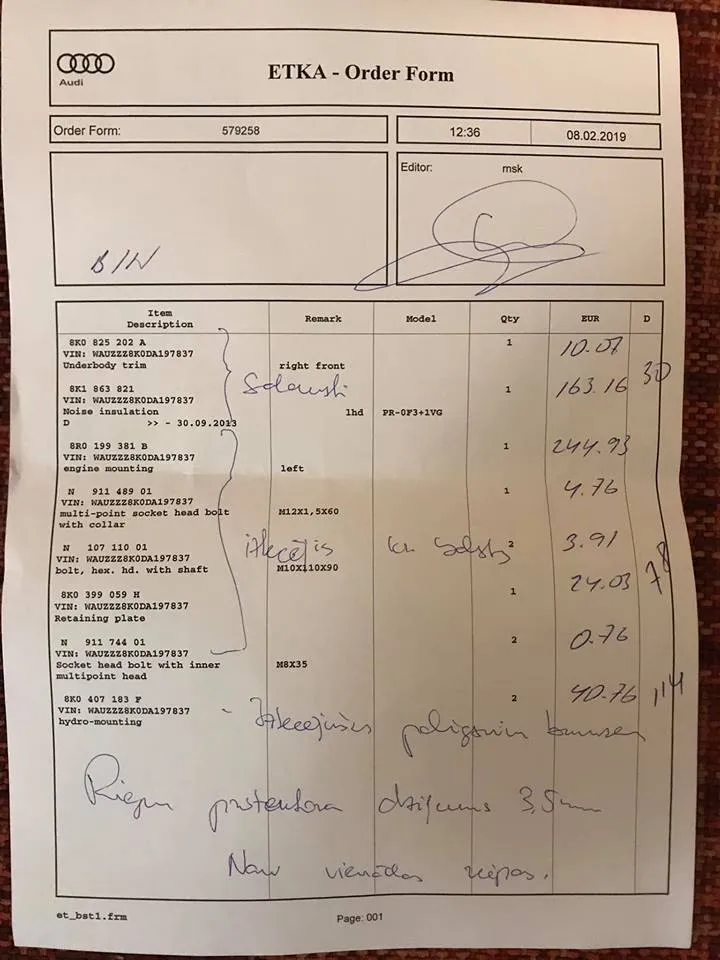 Audi
ETKA - Order Form
Order Form: 579258
12:36 08.02.2019
Editor: msk
B/N
Item Description Remark Model Qty EUR D
8K0 825 202 A 1 10.07
VIN: WAUZZZ8K0DA197837
Underbody trim right front
8K1 863 821 1 163.16 30
VIN: WAUZZZ8K0DA197837
Noise insulation lhd PR-0F3+1VG
D >> - 30.09.2013
8R0 199 381 B 1 244.93
VIN: WAUZZZ8K0DA197837
engine mounting left
N 911 489 01 1 4.76
VIN: WAUZZZ8K0DA197837
multi-point socket head bolt M12X1,5X60
with collar
N 107 110 01 2 3.91
VIN: WAUZZZ8K0DA197837
bolt, hex. hd. with shaft M10X110X90
8K0 399 059 H 1 24.03 78
VIN: WAUZZZ8K0DA197837
Retaining plate
N 911 744 01 2 0.76
VIN: WAUZZZ8K0DA197837
Socket head bolt with inner M8X35
multipoint head
8K0 407 183 F 2 40.76 114
VIN: WAUZZZ8K0DA197837
hydro-mounting
Riepu protektora dziļums 3,5mm
Nav vienādas riepas.
et_bst1.frm Page: 001